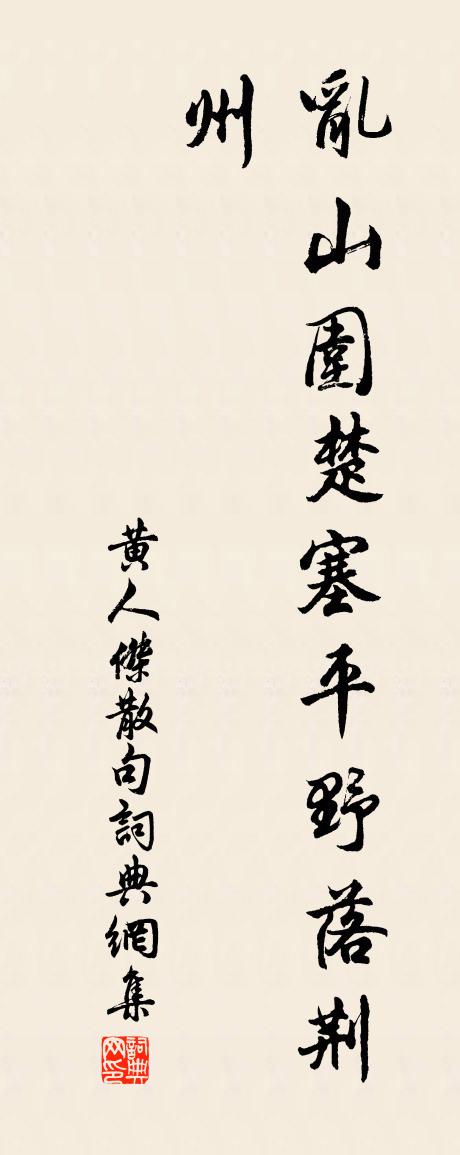 亂山圍楚塞平野落荆
州
黄人傑散句詞典網集
詞典網印